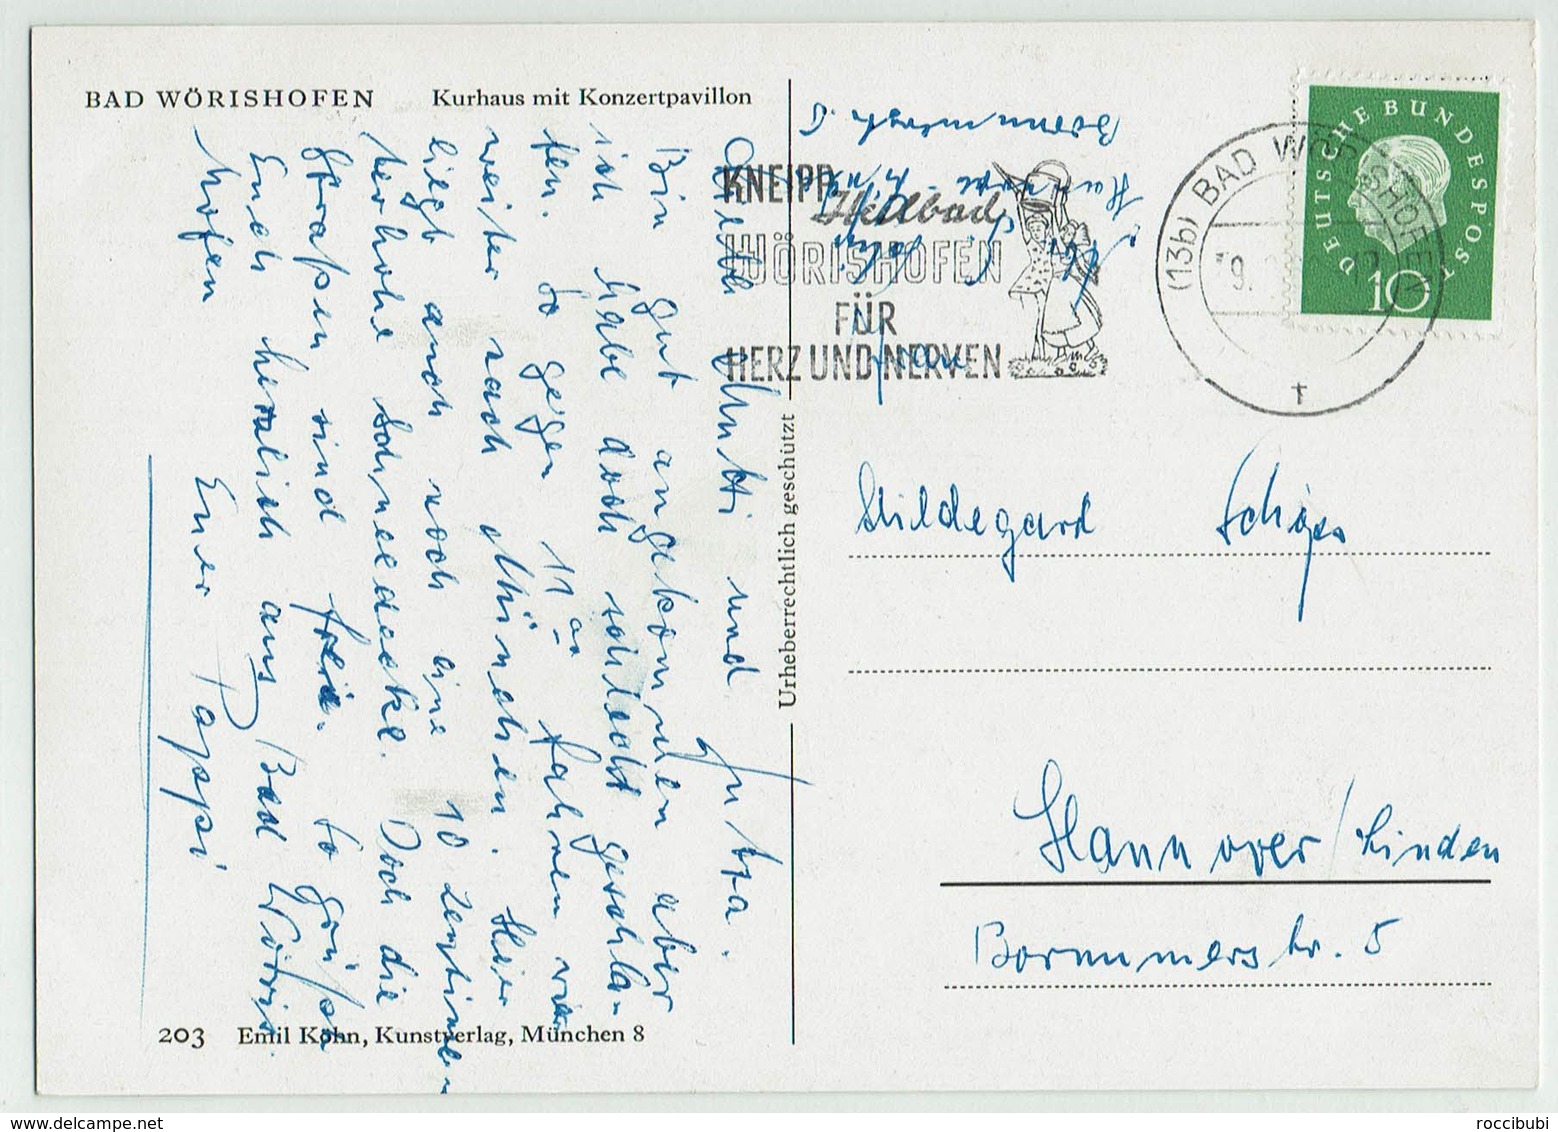 BAD WÖRISHOFEN Kurhaus mit Konzertpavillon
Liebe Mutti und Jutta.
Bin gut angekommen aber
ich habe doch schlecht geschla-
fen. So gegen 11 fahren wir
weiter nach München. Hier
liegt auch noch eine 10 Zentimeter
hohe Schneedecke. Doch die
Straßen sind frei. So grüße
Euch herzlich aus Bad Wöris-
hofen
Euer Pappi
203 Emil Köhn, Kunstverlag, München 8
Urheberrechtlich geschützt
KNEIPP
Heilbad
WÖRISHOFEN
FÜR
HERZ UND NERVEN
(13b) BAD WÖRISHOFEN
DEUTSCHE BUNDESPOST
10
Frau
Hildegard
Hannover/Linden
Bornumerstr. 5
roccibubi